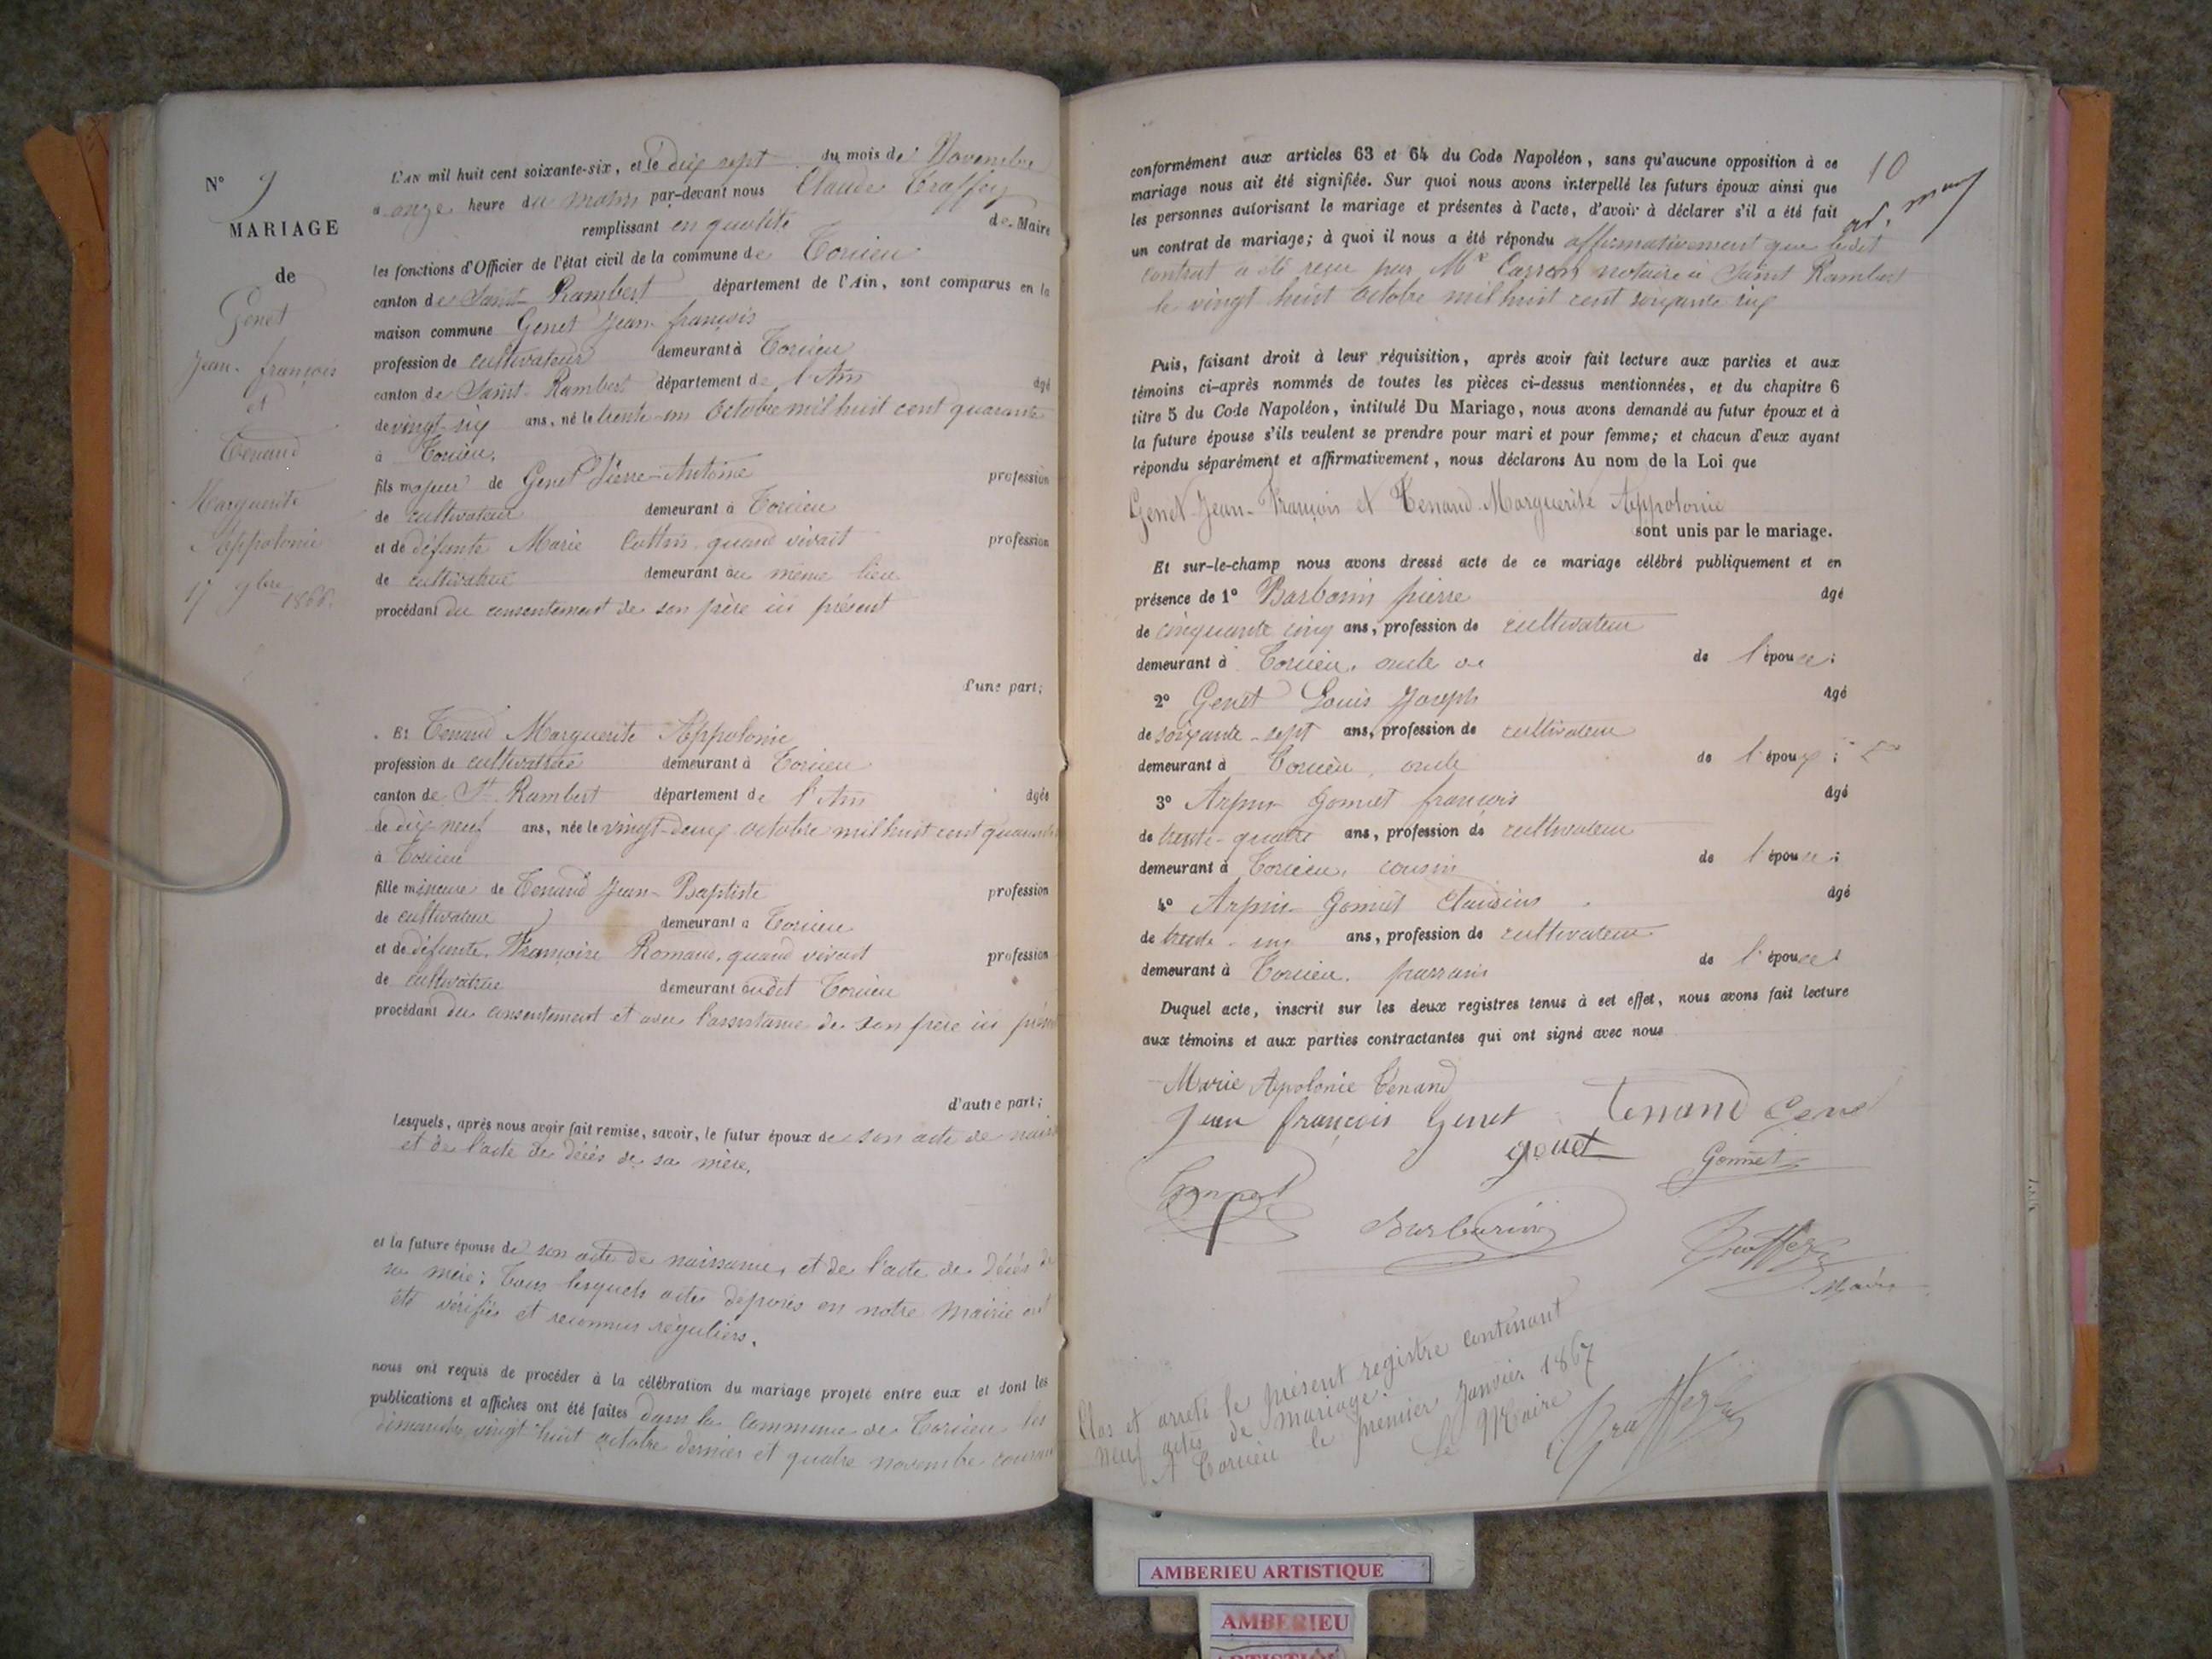 N° 9
MARIAGE
de
Genet
Jean-françois
et
Tenand
Marguerite
Appolonie
17 9bre 1866.
L'AN mil huit cent soixante-six, et le dix sept du mois de Novembre
à onze heure du matin par-devant nous Claude Traffey
remplissant en qualité de Maire
les fonctions d'Officier de l'état civil de la commune de Torcieu
canton de Saint-Rambert département de l'Ain, sont comparus en la
maison commune Genet Jean-françois
profession de cultivateur demeurant à Torcieu
canton de Saint-Rambert département de l'Ain âgé
de vingt-six ans, né le trente-un Octobre mil huit cent quarante
à Torcieu.
fils majeur de Genet Pierre-Antoine profession
de cultivateur demeurant à Torcieu
et de défunte Marie Cottin quand vivait profession
de cultivatrice demeurant au même lieu
procédant du consentement de son père ici présent
d'une part;
Et Tenand Marguerite Appolonie
profession de cultivatrice demeurant à Torcieu
canton de St Rambert département de l'Ain âgée
de dix-neuf ans, née le vingt-deux octobre mil huit cent quarante
à Torcieu
fille mineure de Tenand Jean-Baptiste profession
de cultivateur demeurant à Torcieu
et de défunte Françoise Romand, quand vivait profession
de cultivatrice demeurant audit Torcieu
procédant du consentement et avec l'assistance de son père ici
d'autre part;
Lesquels, après nous avoir fait remise, savoir, le futur époux de son acte de
et de l'acte de décès de sa mère,
et la future épouse de son acte de naissance, et de l'acte de décès de
sa mère; Tous lesquels actes déposés en notre Mairie ont
été vérifiés et reconnus réguliers.
nous ont requis de procéder à la célébration du mariage projeté entre eux et dont les
publications et affiches ont été faites dans la Commune de Torcieu les
dimanches vingt huit octobre dernier et quatre novembre courant
10
conformément aux articles 63 et 64 du Code Napoléon, sans qu'aucune opposition à ce
mariage nous ait été signifiée. Sur quoi nous avons interpellé les futurs époux ainsi que
les personnes autorisant le mariage et présentes à l'acte, d'avoir à déclarer s'il a été fait
un contrat de mariage; à quoi il nous a été répondu affirmativement que ledit
contrat a été reçu par Me Carron notaire à Saint Rambert
le vingt huit octobre mil huit cent soixante six
Puis, faisant droit à leur réquisition, après avoir fait lecture aux parties et aux
témoins ci-après nommés de toutes les pièces ci-dessus mentionnées, et du chapitre 6
titre 5 du Code Napoléon, intitulé Du Mariage, nous avons demandé au futur époux et à
la future épouse s'ils veulent se prendre pour mari et pour femme; et chacun d'eux ayant
répondu séparément et affirmativement, nous déclarons Au nom de la Loi que
Genet Jean-François et Tenand Marguerite Appolonie
sont unis par le mariage.
Et sur-le-champ nous avons dressé acte de ce mariage célébré publiquement et en
présence de 1° Barbarin pierre âgé
de cinquante cinq ans, profession de cultivateur
demeurant à Torcieu, oncle de l'épouse;
2° Genet Louis Joseph âgé
de soixante-sept ans, profession de cultivateur
demeurant à Torcieu, oncle de l'époux;
3° Arpin Gonnet françois âgé
de trente-quatre ans, profession de cultivateur
demeurant à Torcieu, cousin de l'épouse;
4° Arpin Gonnet Claudius âgé
de trente-un ans, profession de cultivateur
demeurant à Torcieu. de l'épouse
Duquel acte, inscrit sur les deux registres tenus à cet effet, nous avons fait lecture
aux témoins et aux parties contractantes qui ont signé avec nous
Marie Apolonie Tenand
Jean françois Genet Tenand
genet Gonnet
Barbarin
Traffey
Maire
Clos et arrêté le présent registre contenant
neuf actes de mariage.
A Torcieu le premier Janvier 1867
Le Maire
Traffey
AMBERIEU ARTISTIQUE
AMBERIEU
ARTISTIQUE